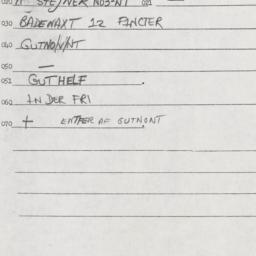 020 STEJNER NO3-NT 021
030 BADENAXT 12 FINCTER
040 GUTNO/V/NT
050 —
051 GUT HELF
060 IN DER FRI
070 + ENTHER AF GUTNONT